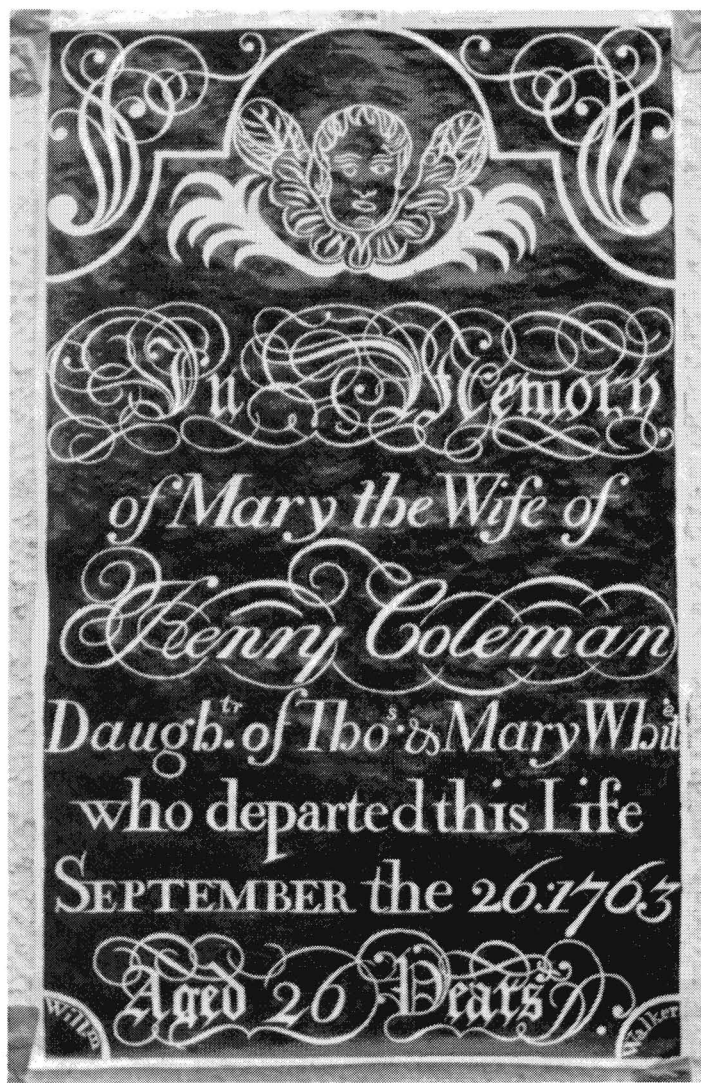 In Memory
of Mary the Wife of
Henry Coleman
Daugh.tr of Thos. & Mary White
who departed this Life
SEPTEMBER the 26:1763
Aged 26 Years
Willm
Walker